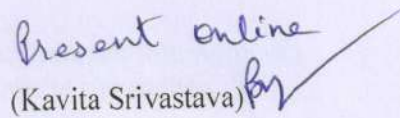 Present online
(Kavita Srivastava)